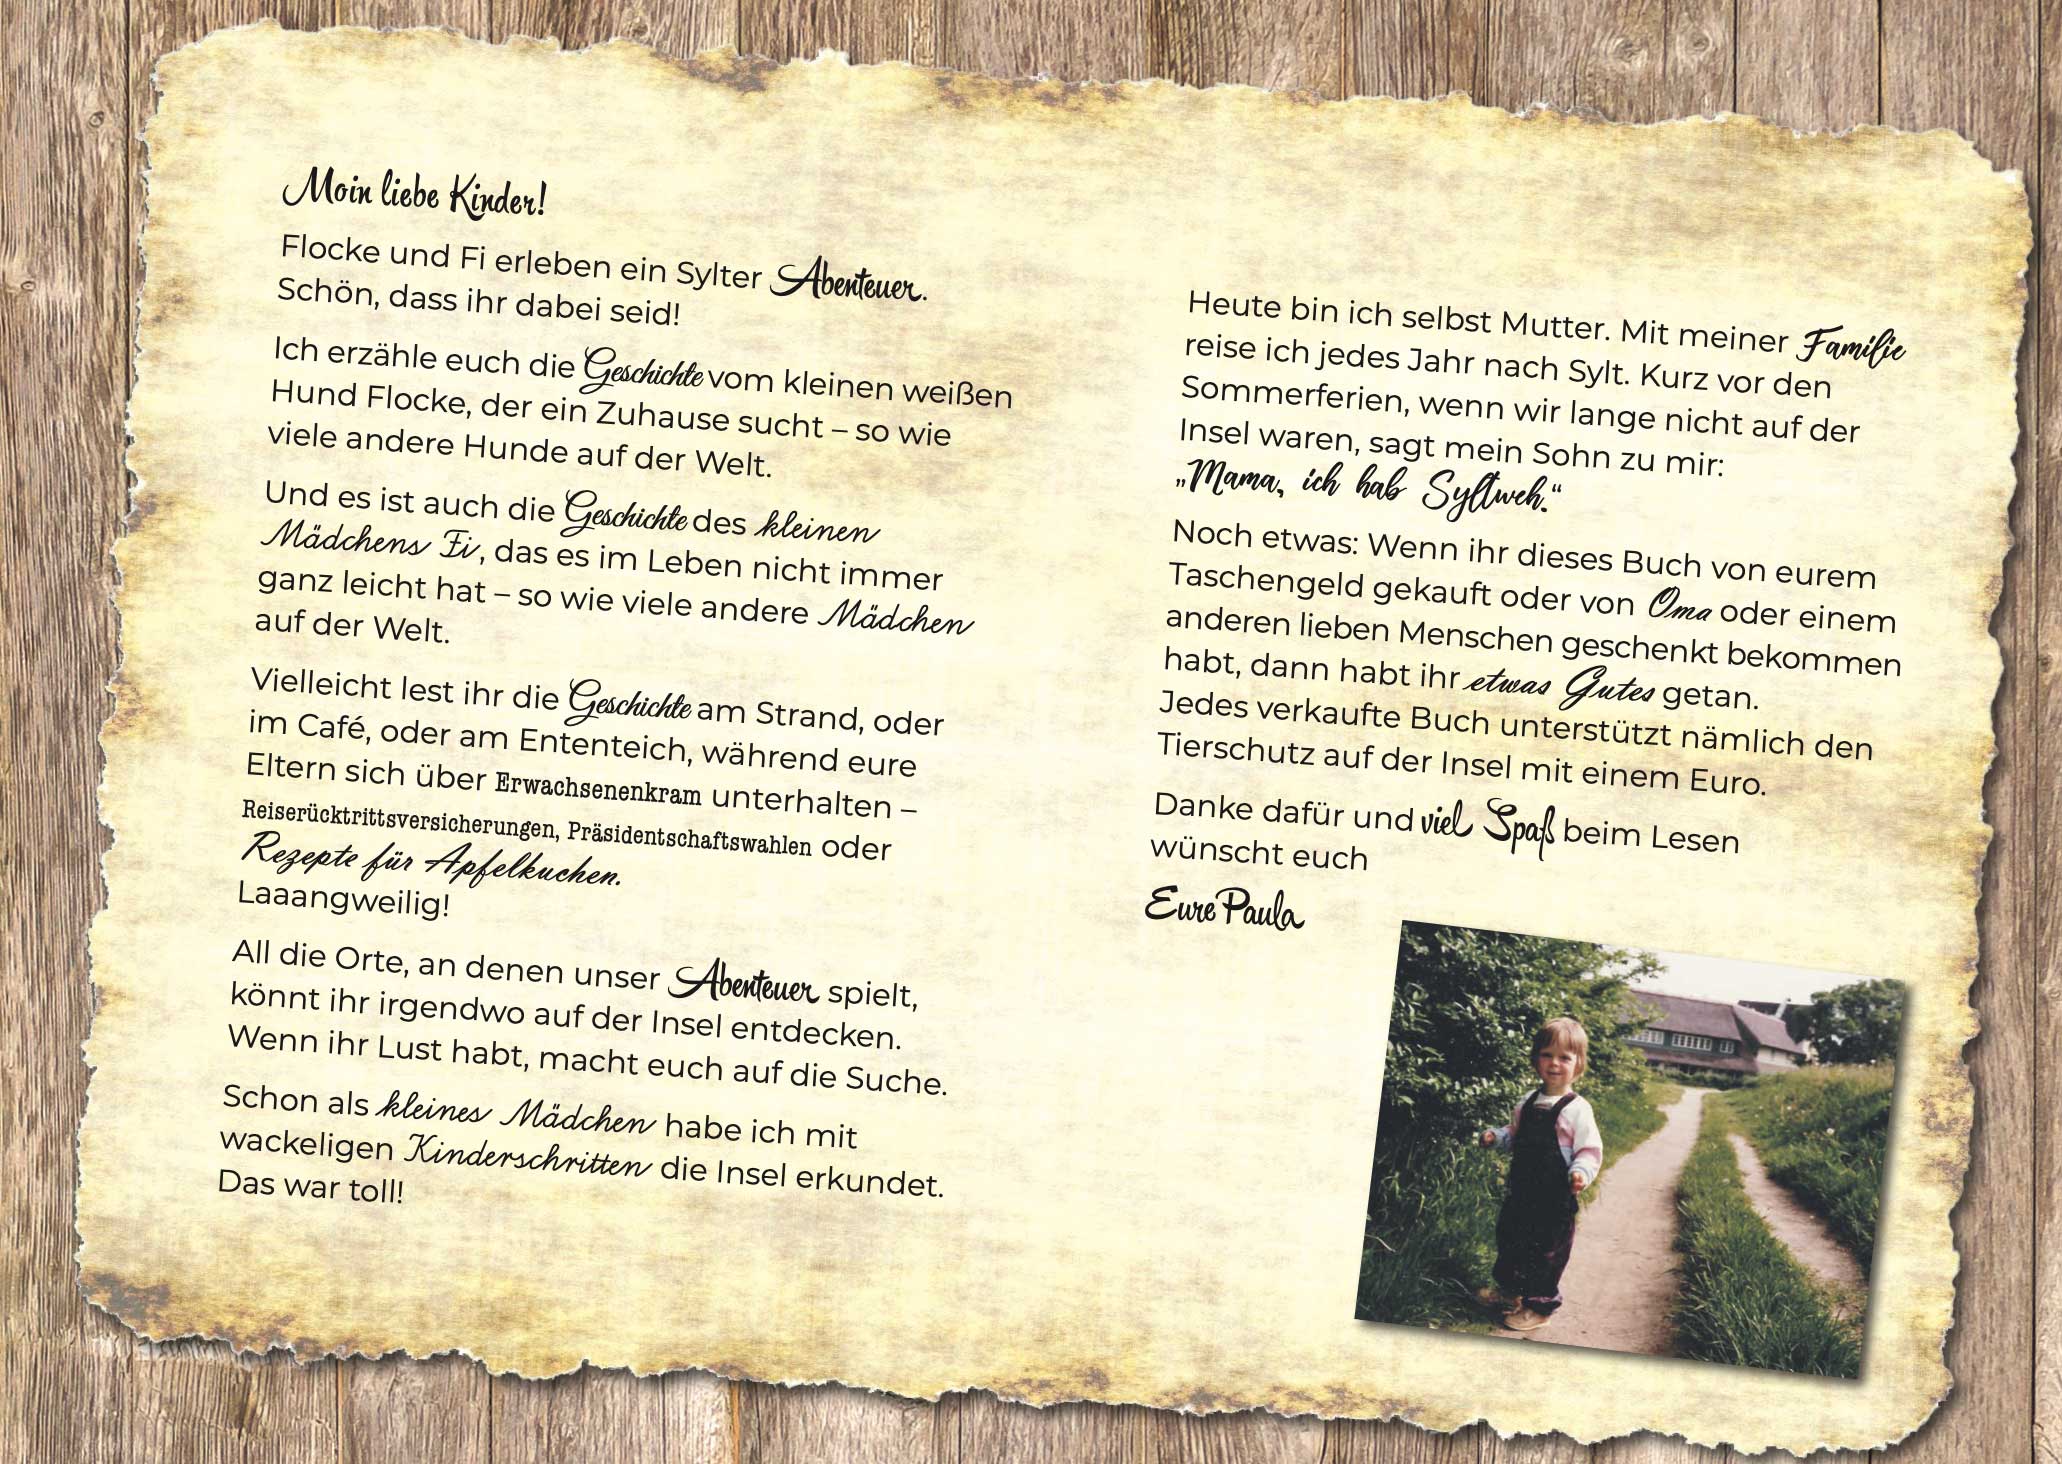 Moin liebe Kinder!
Flocke und Fi erleben ein Sylter Abenteuer.
Schön, dass ihr dabei seid!
Ich erzähle euch die Geschichte vom kleinen weißen
Hund Flocke, der ein Zuhause sucht – so wie
viele andere Hunde auf der Welt.
Und es ist auch die Geschichte des kleinen
Mädchens Fi, das es im Leben nicht immer
ganz leicht hat – so wie viele andere Mädchen
auf der Welt.
Vielleicht lest ihr die Geschichte am Strand, oder
im Café, oder am Ententeich, während eure
Eltern sich über Erwachsenenkram unterhalten –
Reiserücktrittsversicherungen, Präsidentschaftswahlen oder
Rezepte für Apfelkuchen.
Laaangweilig!
All die Orte, an denen unser Abenteuer spielt,
könnt ihr irgendwo auf der Insel entdecken.
Wenn ihr Lust habt, macht euch auf die Suche.
Schon als kleines Mädchen habe ich mit
wackeligen Kinderschritten die Insel erkundet.
Das war toll!
Heute bin ich selbst Mutter. Mit meiner Familie
reise ich jedes Jahr nach Sylt. Kurz vor den
Sommerferien, wenn wir lange nicht auf der
Insel waren, sagt mein Sohn zu mir:
„Mama, ich hab Syltweh.“
Noch etwas: Wenn ihr dieses Buch von eurem
Taschengeld gekauft oder von Oma oder einem
anderen lieben Menschen geschenkt bekommen
habt, dann habt ihr etwas Gutes getan.
Jedes verkaufte Buch unterstützt nämlich den
Tierschutz auf der Insel mit einem Euro.
Danke dafür und viel Spaß beim Lesen
wünscht euch
Eure Paula